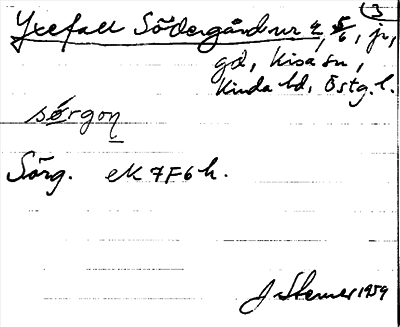 3
Yxefall Södergård nr 2, 5/6, jr,
gd, Kisa sn,
Kinda hd, Östg. l.
sǿrgoꞑ
Sörg. eK 7F6h.
J Sterner 1959